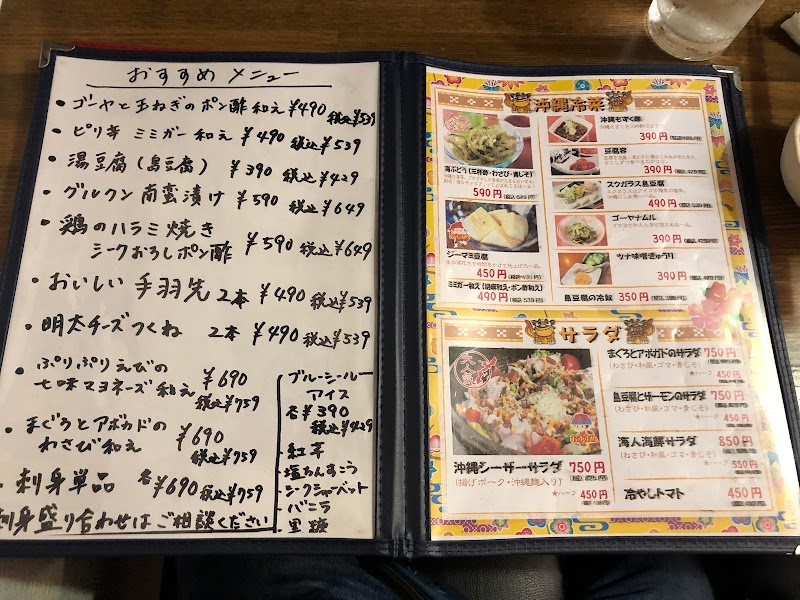 おすすめメニュー
・ゴーヤと玉ねぎのポン酢和え ¥490 税込¥539
・ピリ辛 ミミガー和え ¥490 税込¥539
・湯豆腐(島豆腐) ¥390 税込¥429
・グルクン南蛮漬け ¥590 税込¥649
・鶏のハラミ焼き
シークおろしポン酢 ¥590 税込¥649
・おいしい手羽先 2本 ¥490 税込¥539
・明太チーズつくね 2本 ¥490 税込¥539
・ぷりぷりえびの
七味マヨネーズ和え ¥690
税込¥759
・まぐろとアボカドの
わさび和え ¥690
税込¥759
・刺身単品 各¥690 税込¥759
刺身盛り合わせはご相談ください
ブルーシール
アイス
各¥390
税込¥429
・紅芋
・塩ちんすこう
・シークシャーベット
・バニラ
・黒糖
沖縄冷菜
海ぶどう(三杯酢・わさび・青じそ)
590円(税込649円)
ジーマミ豆腐
450円(税込495円)
ミミガー和え(胡麻和え・ポン酢和え)
490円(税込539円)
沖縄もずく酢
390円(税込429円)
豆腐よう
390円(税込429円)
スクガラス島豆腐
490円(税込539円)
ゴーヤナムル
390円(税込429円)
ツナ味噌きゅうり
390円(税込429円)
島豆腐の冷奴 350円(税込385円)
サラダ
大人気
沖縄シーザーサラダ 750円
(揚げポーク・沖縄麺入り)
★ハーフ 450円
まぐろとアボガドのサラダ 750円
(わさび・和風・ゴマ・青じそ)
★ハーフ 450円
島豆腐とサーモンのサラダ 750円
(わさび・和風・ゴマ・青じそ)
★ハーフ 450円
海人海鮮サラダ 850円
(わさび・和風・ゴマ・青じそ)
★ハーフ 550円
冷やしトマト 450円